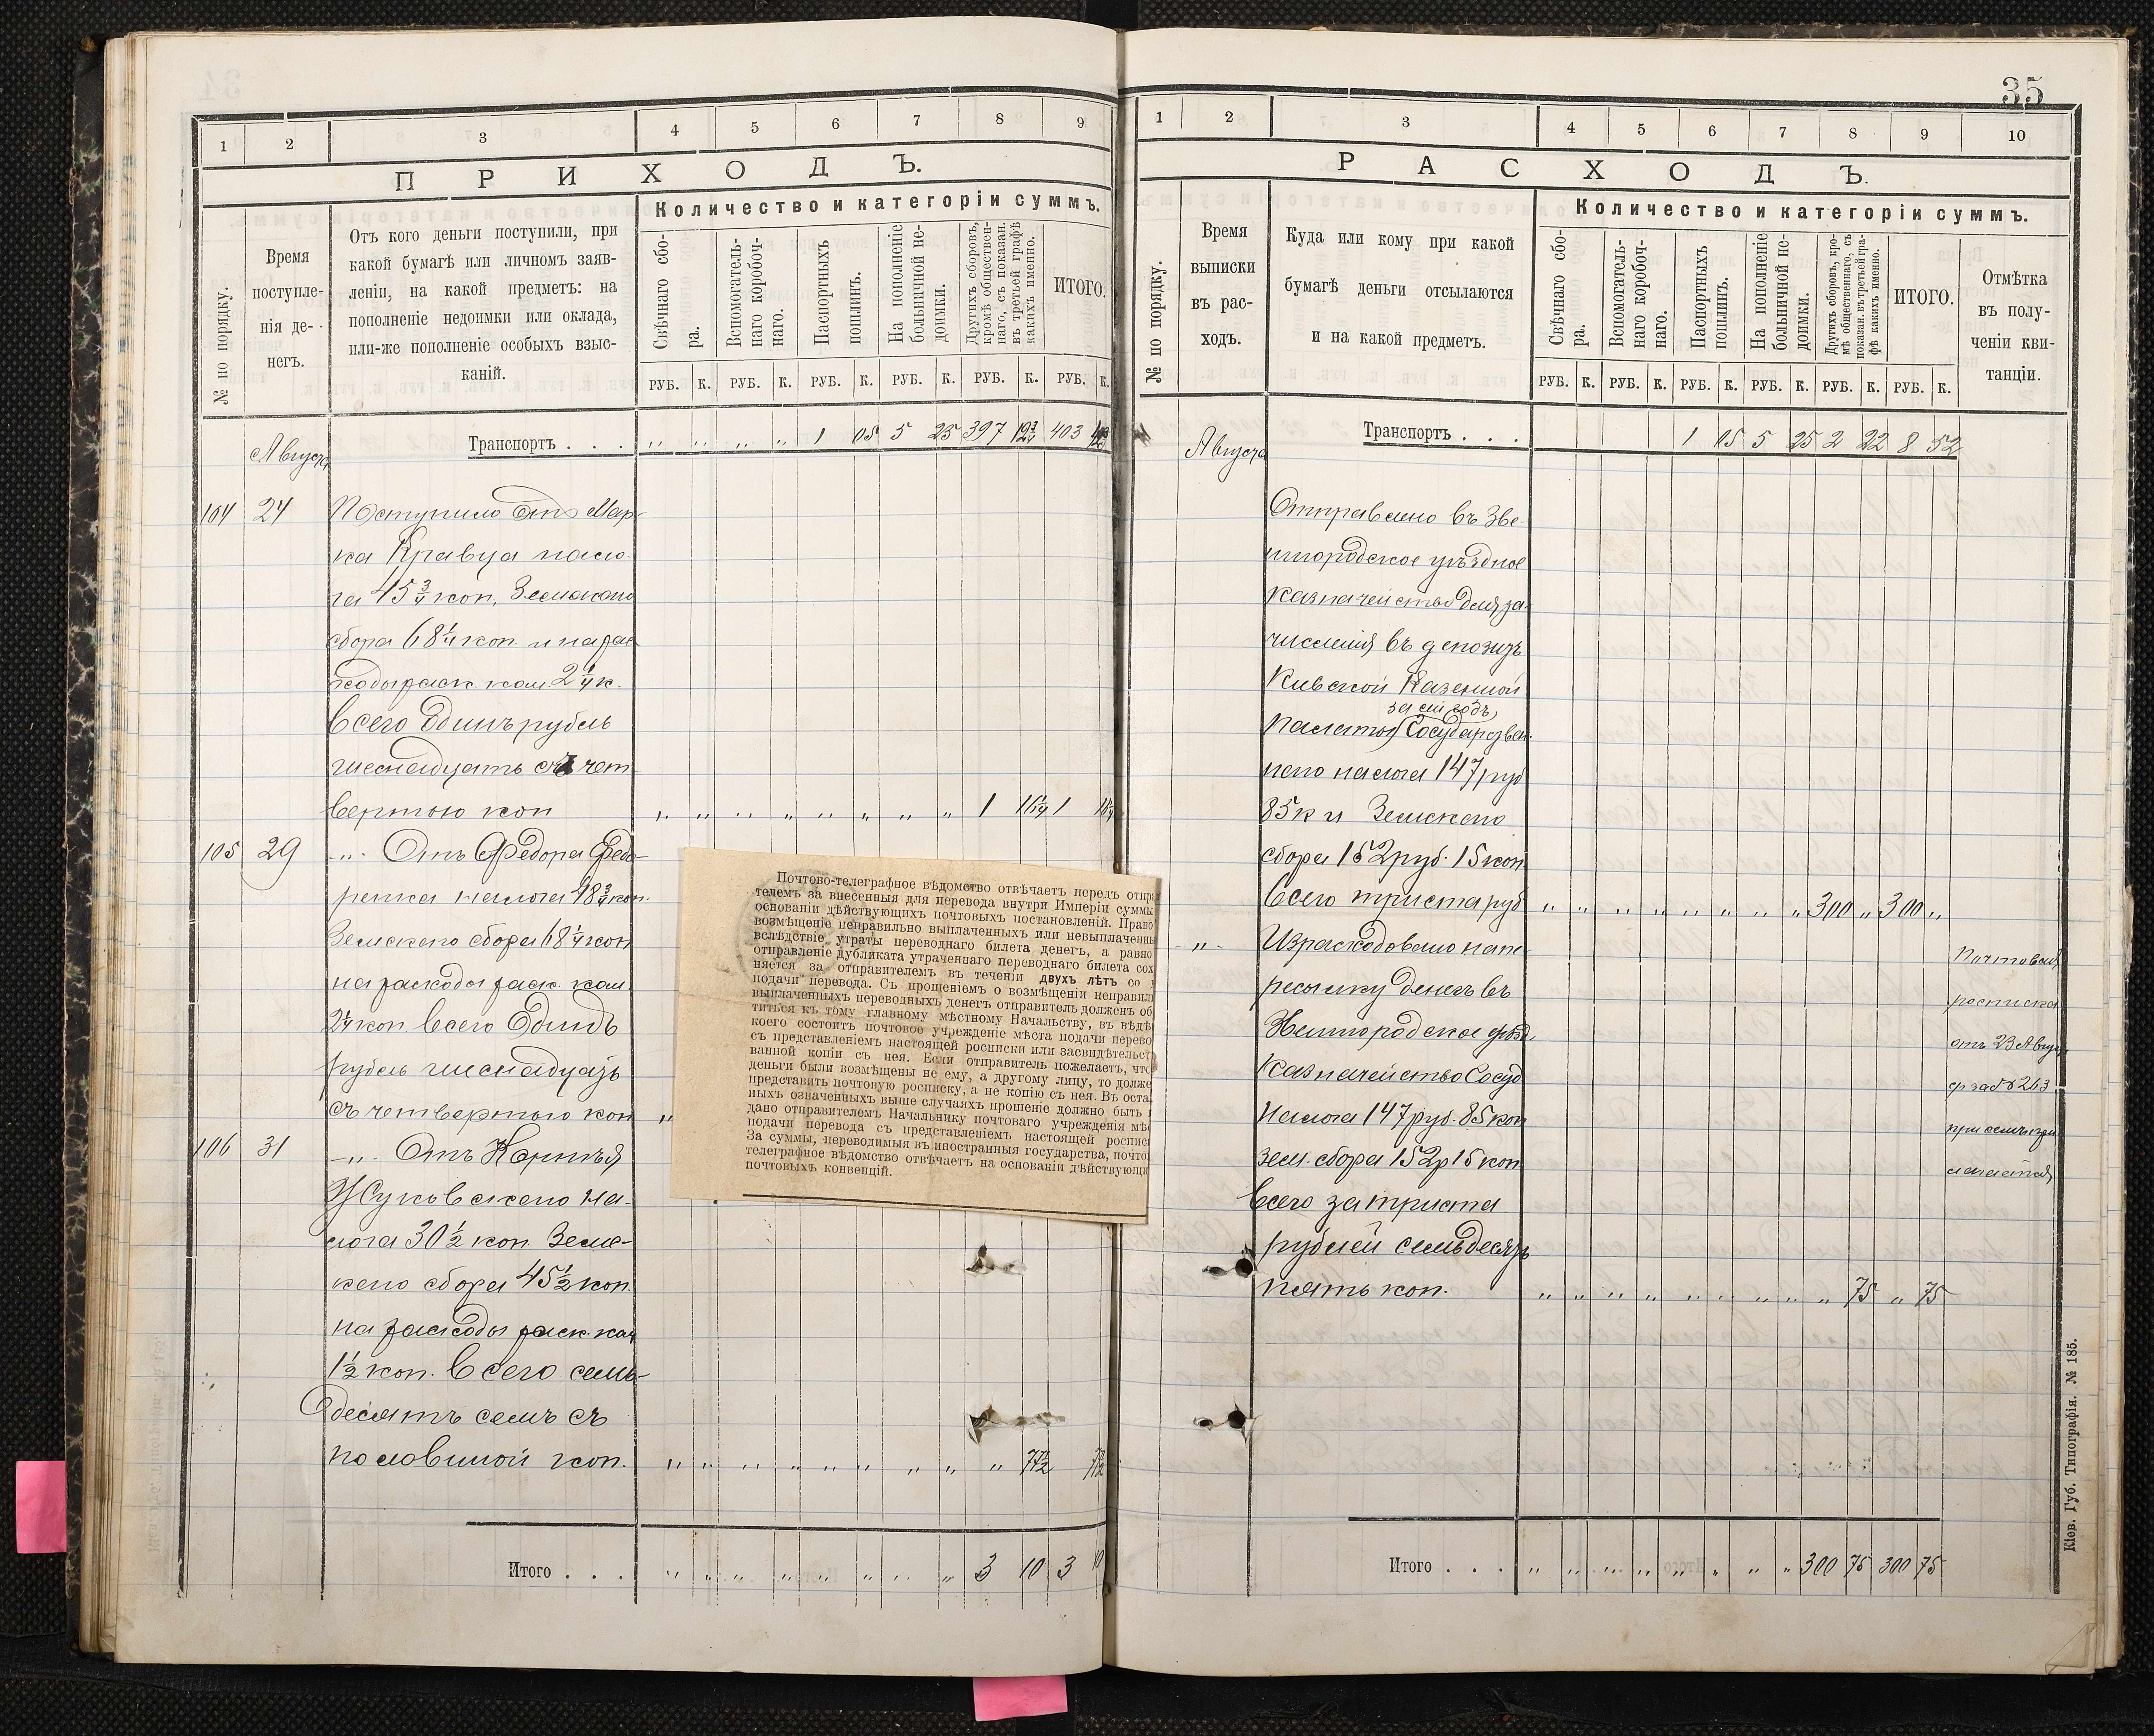 35
1 2 3 4 5 6 7 8 9
ПРИХОДЪ.
Количество и категоріи суммъ.
№ по порядку.
Время
поступле-
нія де-
негъ.
Отъ кого деньги поступили, при
какой бумагѣ или личномъ заяв-
леніи, на какой предметъ: на
пополненіе недоимки или оклада,
или-же пополненіе особыхъ взыс-
каній.
Свѣчнаго сбо-
ра.
Вспомогатель-
наго коробоч-
наго.
Паспортныхъ
пошлинъ.
На пополненіе
больничной не-
доимки.
Другихъ сборовъ,
кромѣ обществен-
наго, съ показан.
въ третьей графѣ
какихъ именно.
ИТОГО.
РУБ. К. РУБ. К. РУБ. К. РУБ. К. РУБ. К. РУБ. К.
Транспортъ . . . „ „ „ „ 1 05 5 25 397 19¾ 403
Августа
104 24 Поступило Отъ Мар-
ка Кравца нало-
га 45¾ коп, Земскаго
сбора 68¼ коп. и на рас
ходы раск. ком. 2¼ к.
Всего Одинъ рубль
шеснадцать съ чет
вертою коп „ „ „ „ „ „ „ „ 1 16¼ 1 16¼
105 29 „ Отъ Федора Федо-
ренка налога 48¾ коп.
Земскаго сбора 68¼ коп
на расходы раск. ком.
2¼ коп. Всего Одинъ
рубль шеснадцать
съ четвертою коп „
106 31 „ Отъ Корнѣя
Жуковскаго На-
лога 30½ коп. Земс-
каго сбора 45½ коп.
на расходы раск. ком
1½ коп. Всего семь-
десятъ семъ съ
половиной коп. „ „ „ „ „ „ „ „ „ 77½ 77½
Итого . . . „ „ „ „ „ „ „ „ 3 10 3 10
Почтово-телеграфное вѣдомство отвѣчаетъ передъ отпра
телемъ за внесенныя для перевода внутри Имперіи суммы
основаніи дѣйствующихъ почтовыхъ постановленій. Право
возмѣщеніе неправильно выплаченныхъ или невыплаченны
вслѣдствіе утраты переводнаго билета денегъ, а равно
отправленіе дубликата утраченнаго переводнаго билета сох
няется за отправителемъ въ теченіи двухъ лѣтъ со
подачи перевода. Съ прошеніемъ о возмѣщеніи неправил
выплаченныхъ переводныхъ денегъ отправитель долженъ об
титься къ тому главному мѣстному Начальству, въ вѣдѣ
коего состоитъ почтовое учрежденіе мѣста подачи перево
съ представленіемъ настоящей росписки или засвидѣтельст
ванной копіи съ нея. Если отправитель пожелаетъ, что
деньги были возмѣщены не ему, а другому лицу, то долже
представить почтовую росписку, а не копію съ нея. Въ оста
ныхъ означенныхъ выше случаяхъ прошеніе должно быть
дано отправителемъ Начальнику почтоваго учрежденія мѣ
подачи перевода съ представленіемъ настоящей роспис
За суммы, переводимыя въ иностранныя государства, почто
телеграфное вѣдомство отвѣчаетъ на основаніи дѣйствующи
почтовыхъ конвенцій.
1 2 3 4 5 6 7 8 9 10
РАСХОДЪ.
Количество и категоріи суммъ.
№ по порядку.
Время
выписки
въ рас-
ходъ.
Куда или кому при какой
бумагѣ деньги отсылаются
и на какой предметъ.
Свѣчнаго сбо-
ра.
Вспомогатель-
наго коробоч-
наго.
Паспортныхъ
пошлинъ.
На пополненіе
больничной не-
доимки.
Другихъ сборовъ, кро-
мѣ общественнаго, съ
показан. въ третьей гра-
фѣ какихъ именно.
ИТОГО.
Отмѣтка
въ полу-
ченіи кви-
танціи.
РУБ. К. РУБ. К. РУБ. К. РУБ. К. РУБ. К. РУБ. К.
Транспортъ . . . 1 05 5 25 2 22 8 52
Августа
Отправлено въ Зве-
нигородское уѣздное
казначейство для за-
численія въ депозитъ
Кіевской Казенной
за сей годъ,
Палаты Государствен-
наго налога 147 руб
85 к и Земскаго
сбора 152 руб. 15 коп
Всего триста руб „ „ „ „ „ „ „ „ 300 „ 300 „
„ Израсходовано на пе-
ресылку денегъ въ
Звенигородское уѣзд.
казначейство Госуд
Налога 147 руб. 85 коп
зем. сбора 152 р 15 коп
Всего за триста
рублей семьдесятъ
пять коп. „ „ „ „ „ „ „ „ „ 75 „ 75
Почтовая
росписка
отъ 23 Августа
за № 263
при семъ при
лагается
Итого . . . „ „ „ „ „ „ „ „ 300 75 300 75
Кіев. Губ. Типографія. № 185.